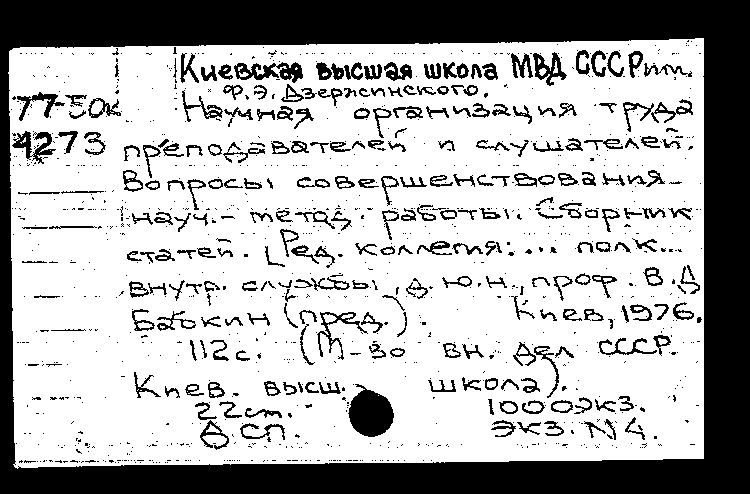 Киевская высшая школа МВД СССР им.
Ф.Э. Дзержинского.
77-50к Научная организация труда
4273 преподавателей и слушателей.
Вопросы совершенствования
науч.-метод. работы. Сборник
статей. [Ред. коллегия: ... полк...
внутр. службы, д.ю.н., проф. В.Д
Бабкин (пред.). Киев, 1976.
112с. (М-во вн. дел СССР.
Киев. высш. школа).
22см. 1000экз.
ДСП. экз. N4.